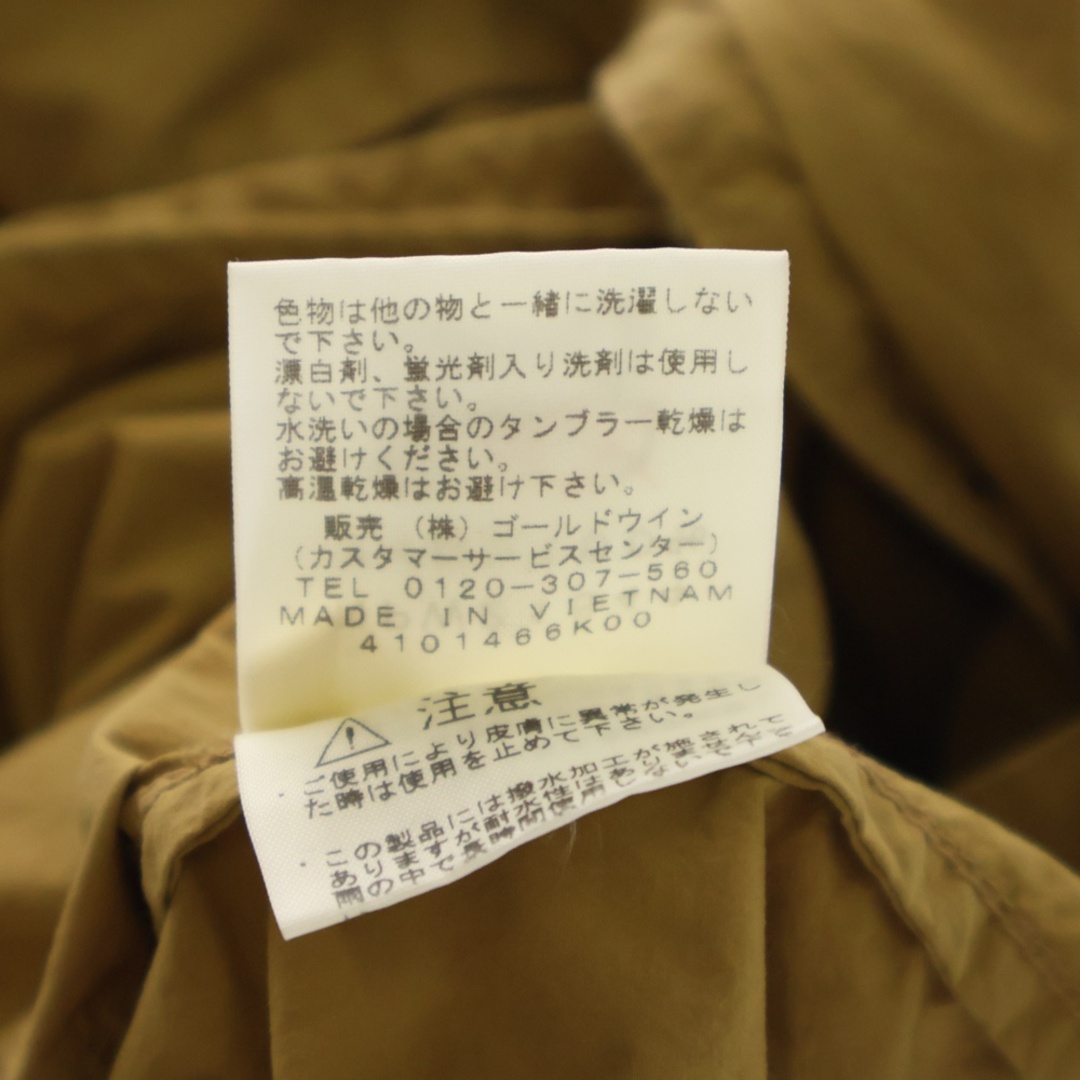 色物は他の物と一緒に洗濯しない
で下さい。
漂白剤、蛍光剤入り洗剤は使用し
ないで下さい。
水洗いの場合のタンブラー乾燥は
お避けください。
高温乾燥はお避け下さい。
販売 (株) ゴールドウイン
(カスタマーサービスセンター)
TEL 0120-307-560
MADE IN VIETNAM
4101466K00
注意
・ご使用により皮膚に異常が発生し
た時は使用を止めて下さい。
・この製品には撥水加工が施されて
ありますが耐水性はありませんので
雨の中で長時間使用しないで